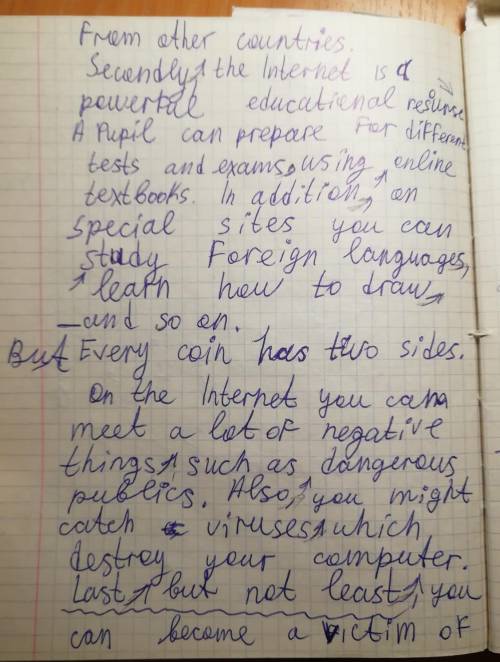 From other countries.
Secondly, the Internet is a
powerful educational resourse
A Pupil can prepare for different
tests and exams, using online
textbooks. In addition, on
special sites you can
study Foreign languages,
learn how to draw,
and so on.
But Every coin has two sides.
On the Internet you can
meet a lot of negative
things, such as dangerous
publics. Also, you might
catch viruses, which
destroy your computer.
Last, but not least, you
can become a victim of